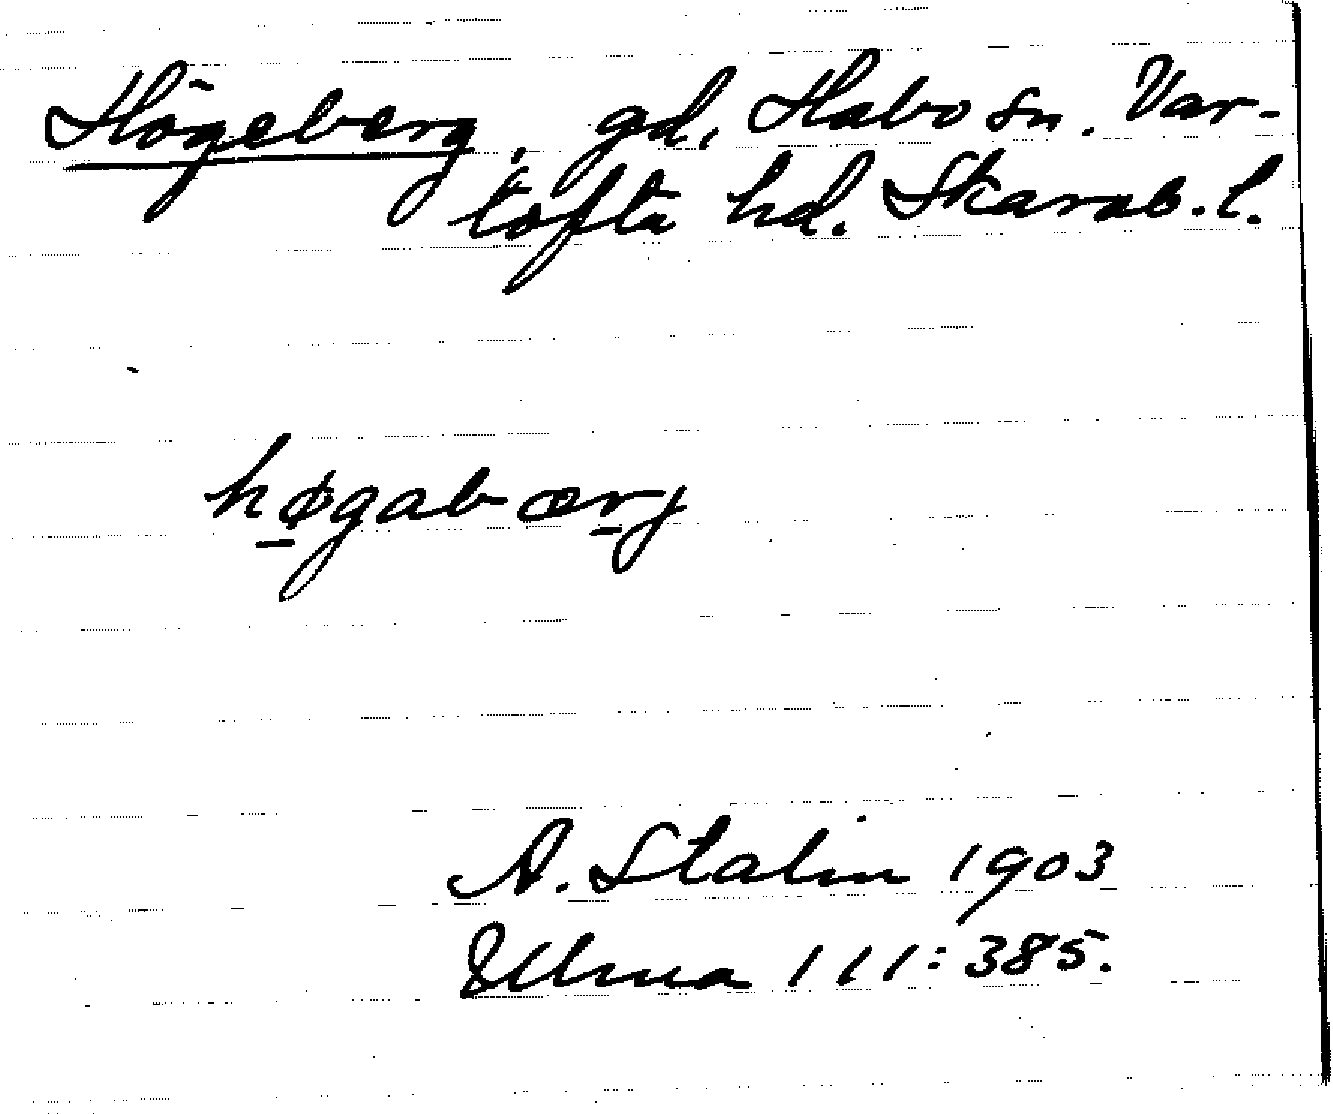 Högeberg, gd, Habo sn. Var-
tofta hd. Skarab. l.
høgabærj
A. Stalin 1903
Ulma 111:385.